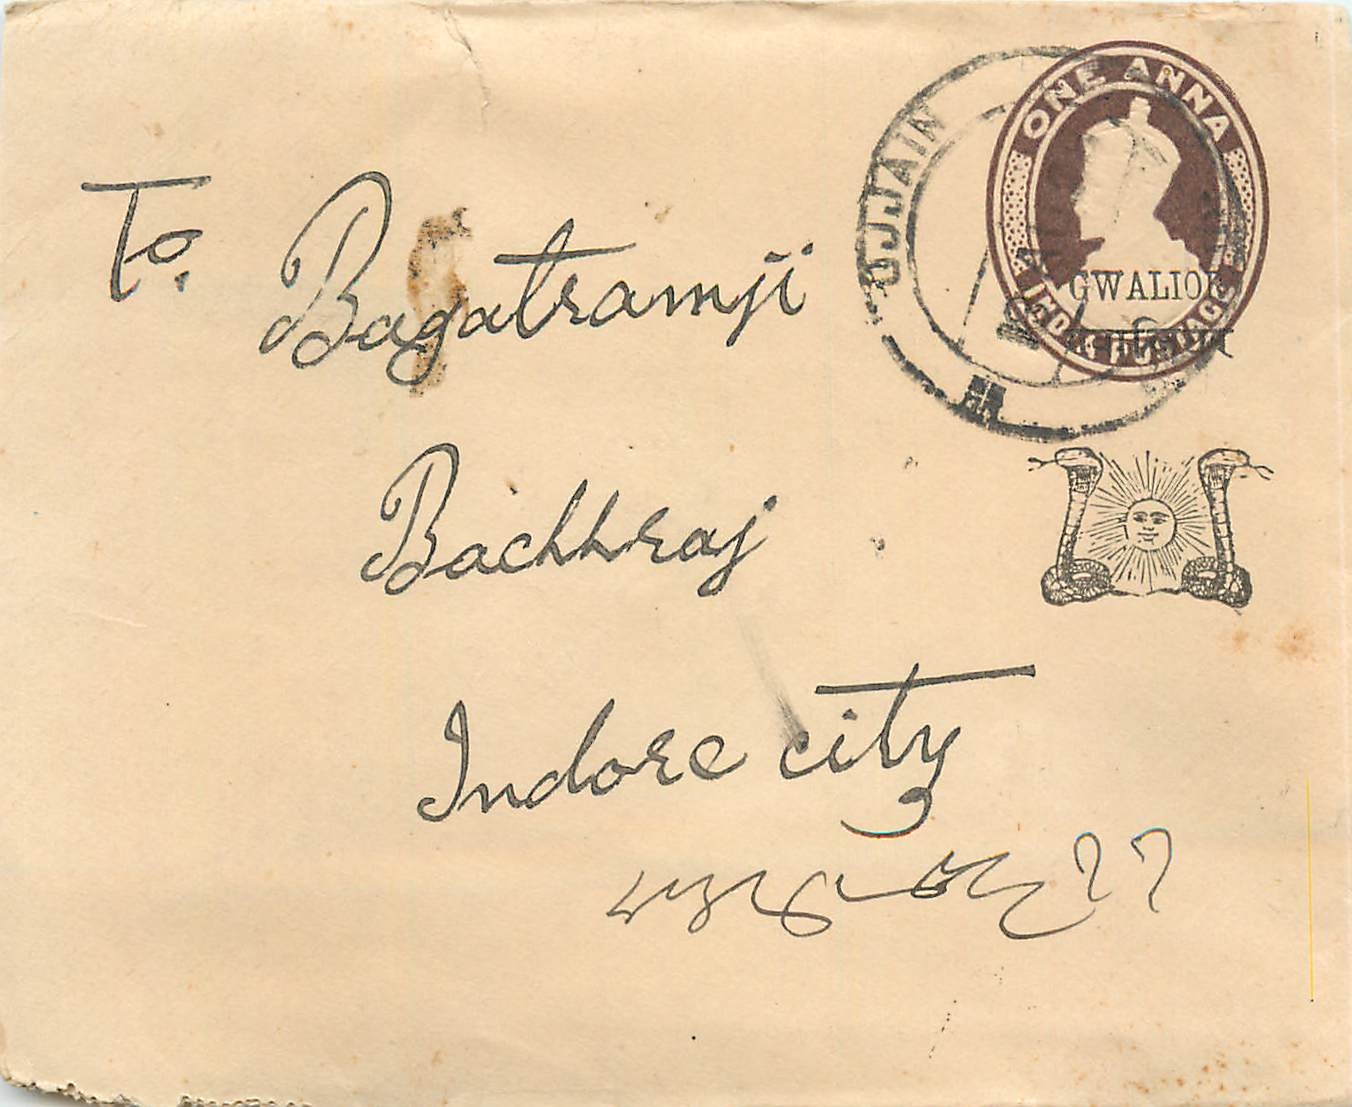 ONE ANNA
INDIA POSTAGE
GWALIOR
UJJAIN
To.
Bagatramji
Bachhraj
Indore city